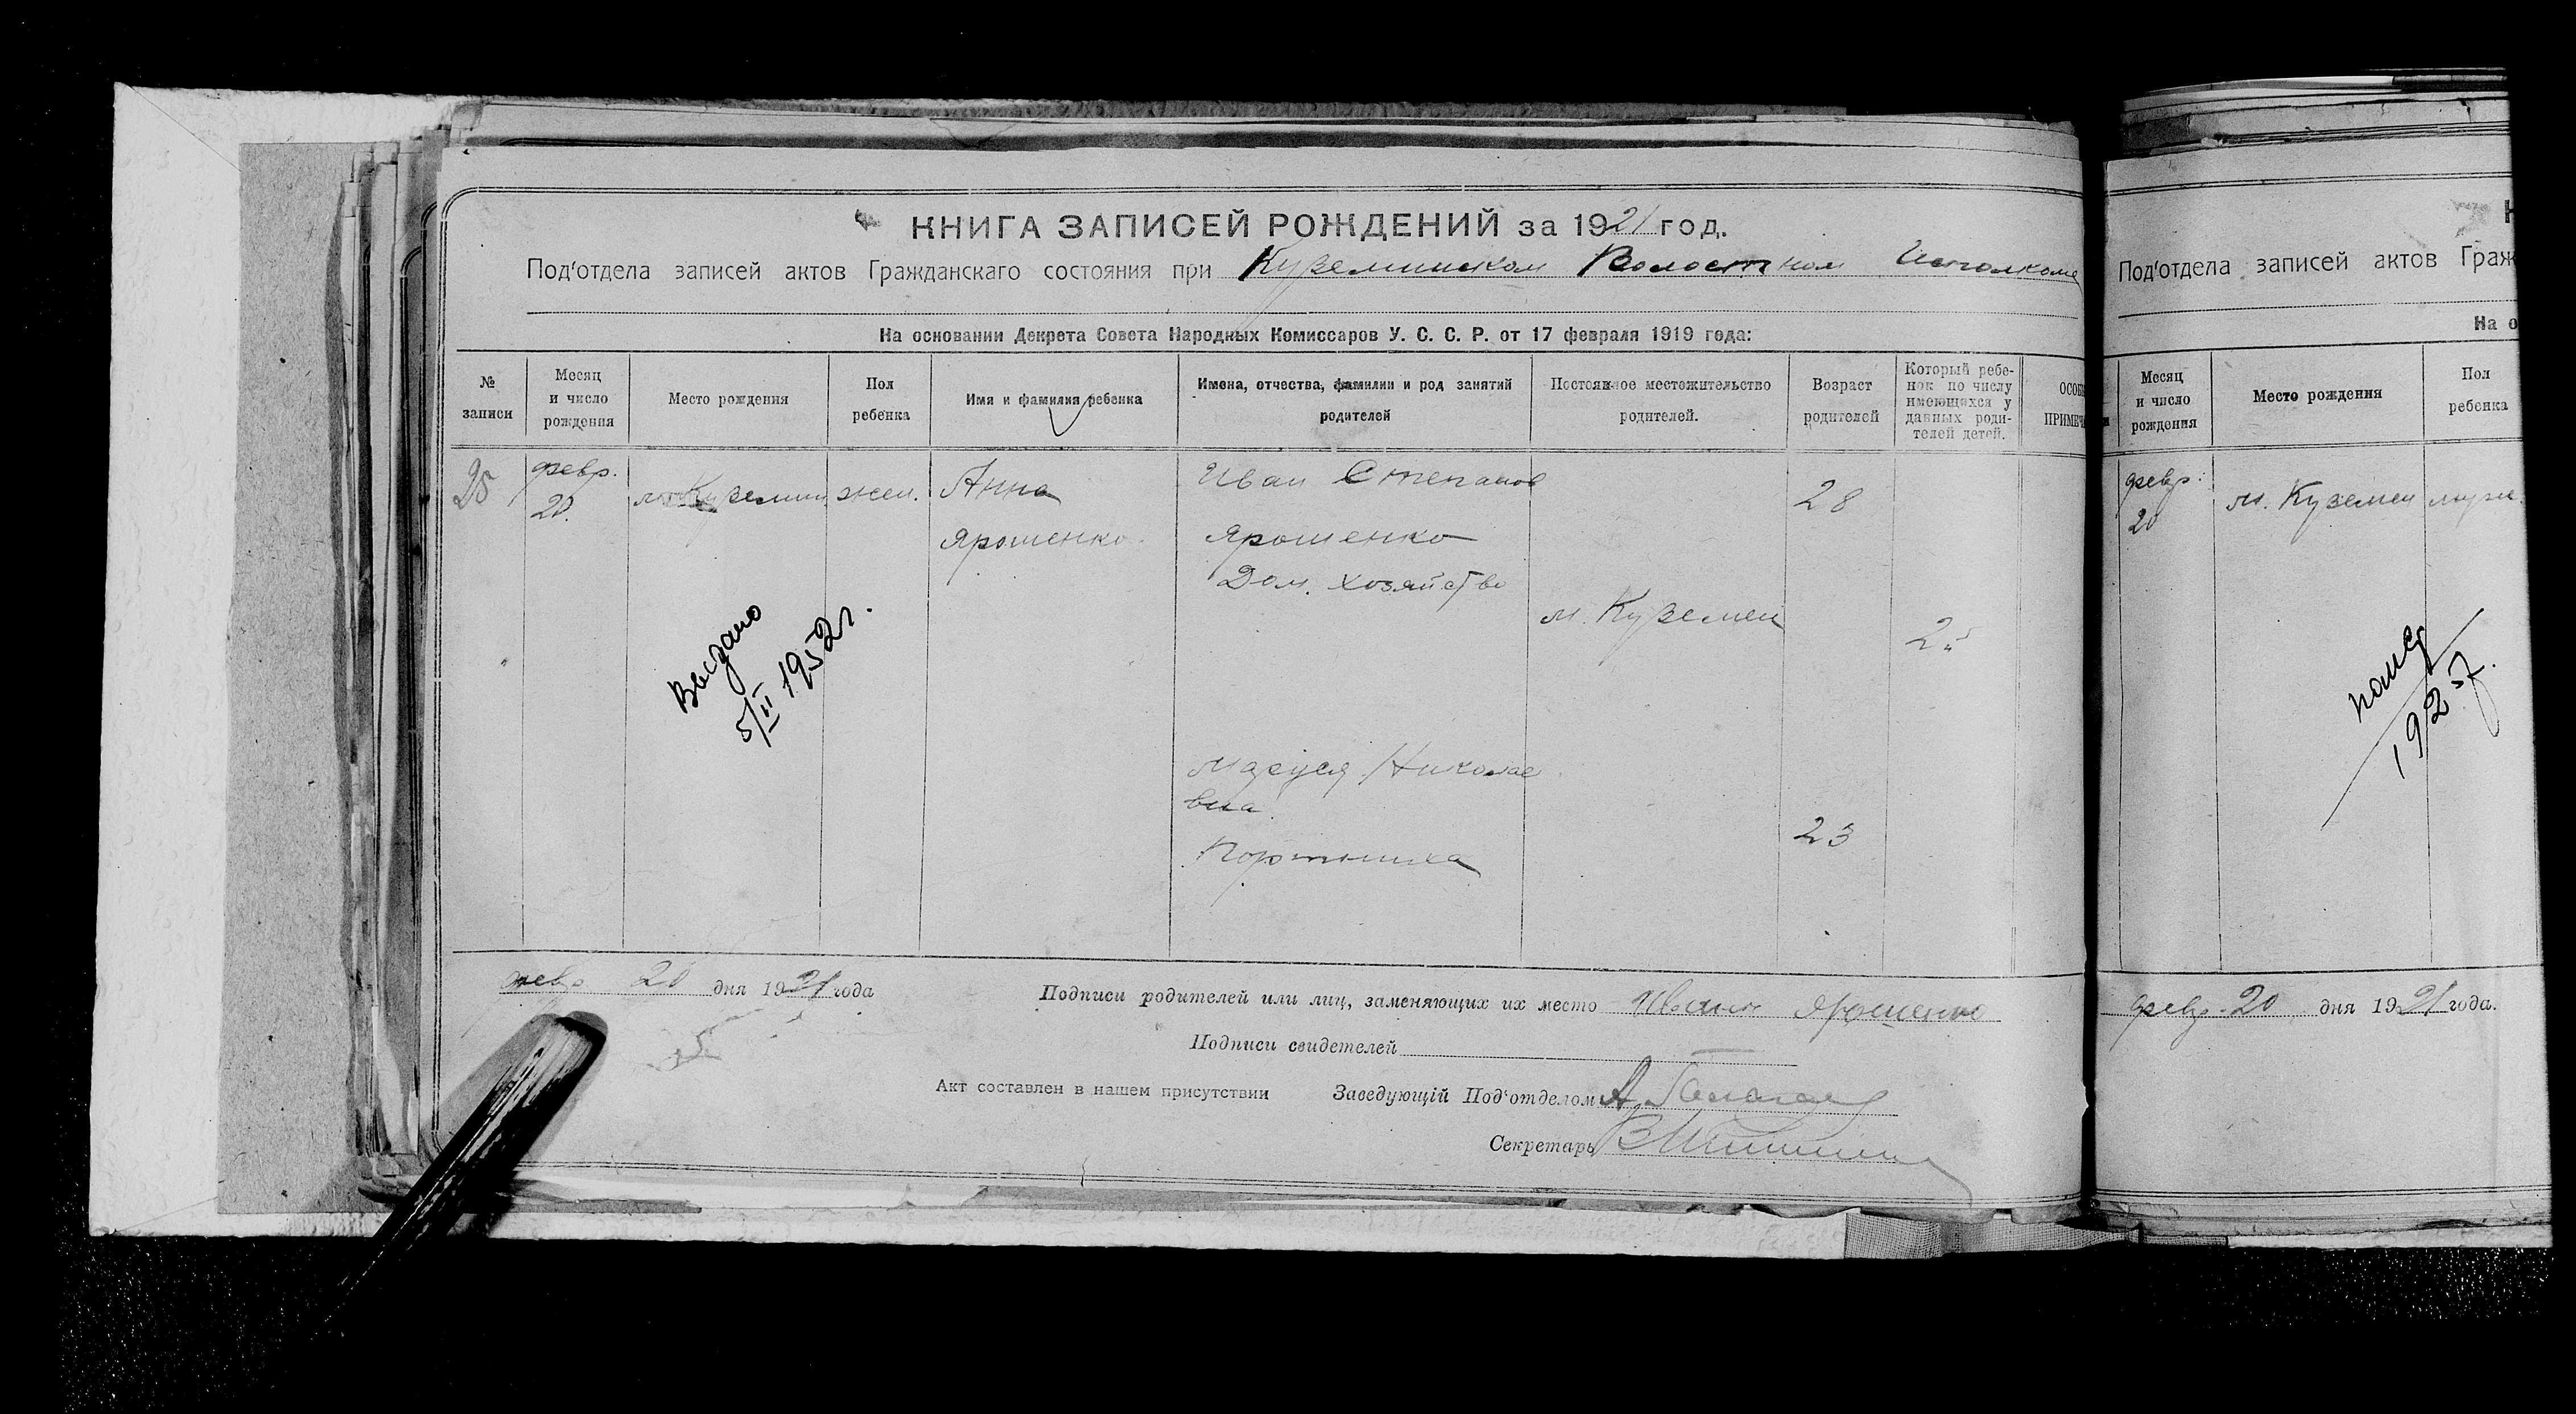 КНИГА ЗАПИСЕЙ РОЖДЕНИЙ за 1921 год.
Под'отдела записей актов Гражданскаго состояния при Куземинском Волостном Исполкоме
На основании Декрета Совета Народных Комиссаров У. С. С. Р. от 17 февраля 1919 года:
№ записи
Месяц и число рождения
Место рождения
Пол ребенка
Имя и фамилия ребенка
Имена, отчества, фамилии и род занятий родителей
Постоянное местожительство родителей.
Возраст родителей
Который ребенок по числу имеющихся у данных родителей детей.
ОСОБ
ПРИМЕЧ
25
февр. 20.
м. Куземин
жен.
Анна
Ярошенко
Иван Степанов
Ярошенко
Дом. хозяйство
28
м. Куземен
2й
Выдано
5/II 1952г.
Маруся Николае
вна
23
февр 20 дня 1921 года
Подписи родителей или лиц, заменяющих их место Иван Ярошенко
Подписи свидетелей
Акт составлен в нашем присутствии
Заведующій Под'отделом А.
Секретарь
Под'отдела записей актов Граж
На о
Месяц и число рождения
Место рождения
Пол ребенка
февр. 20
м. Куземен
муж.
1925г.
февр. 20 дня 1921 года.